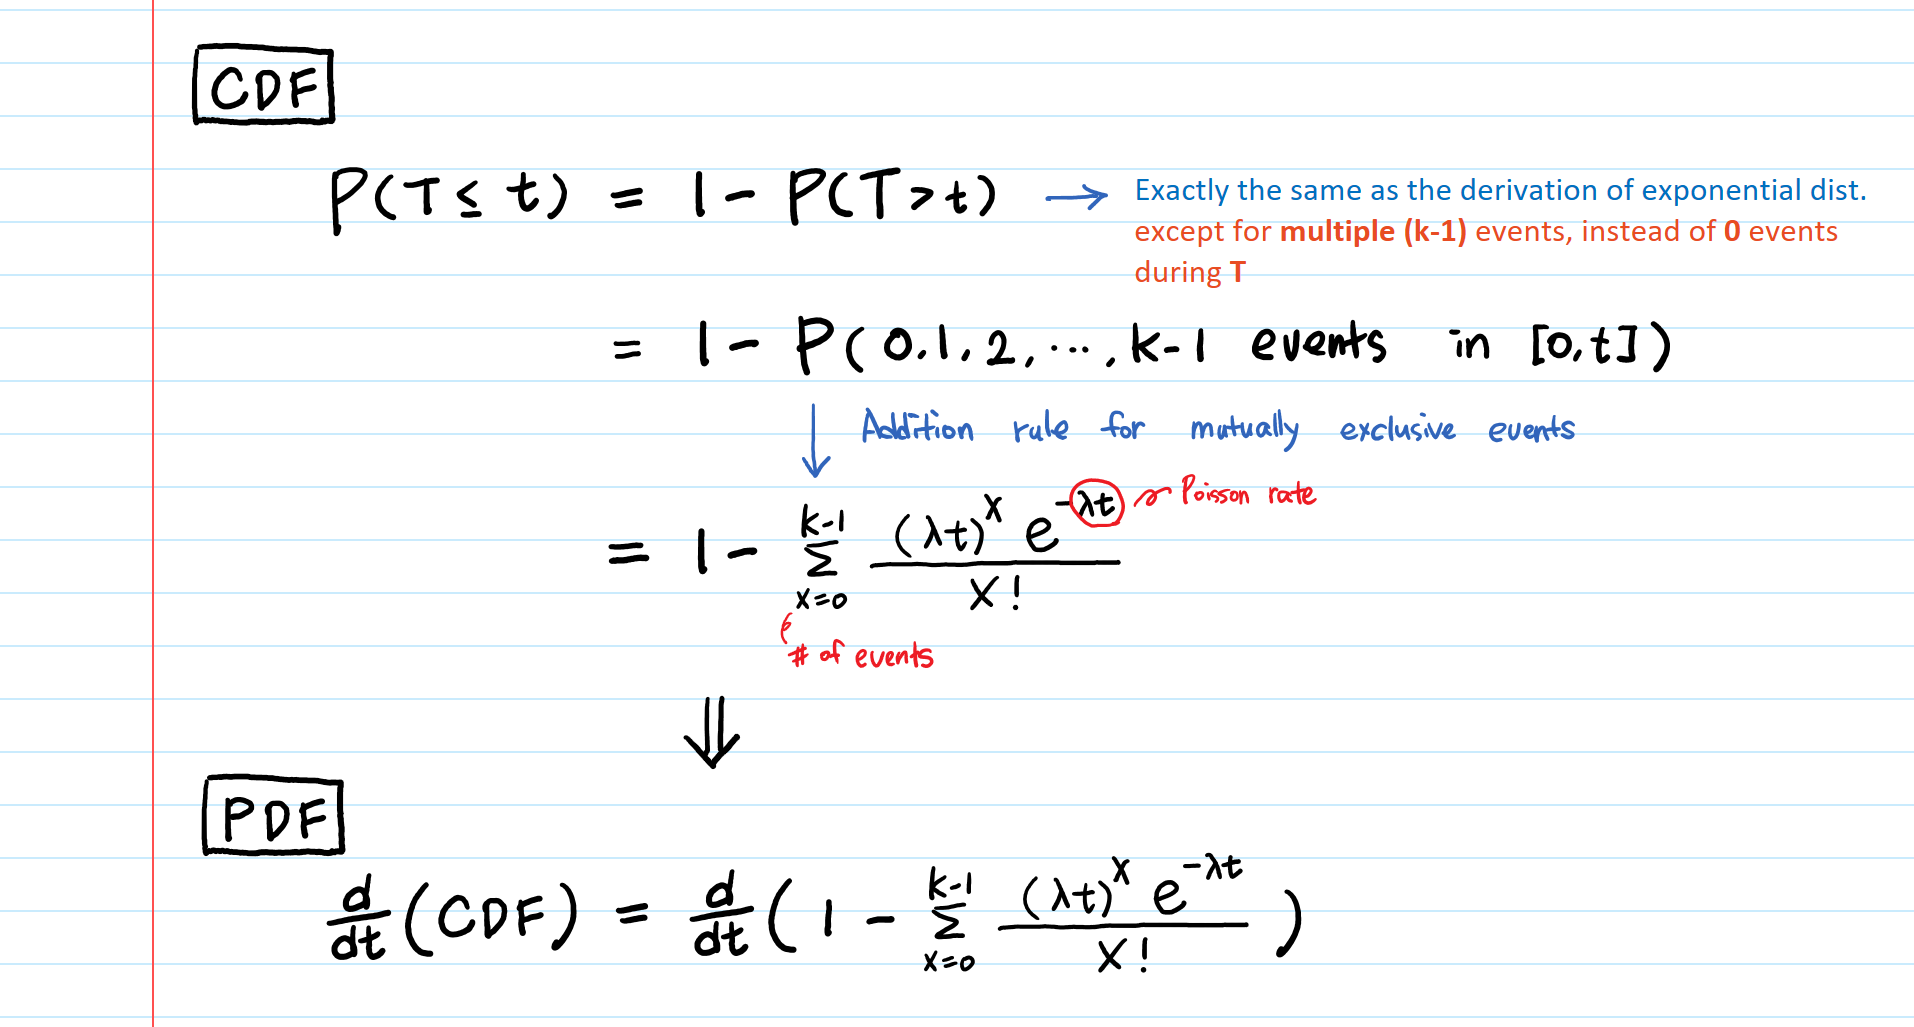 CDF
P(T ≤ t) = 1 - P(T > t) → Exactly the same as the derivation of exponential dist.
except for multiple (k-1) events, instead of 0 events
during T
= 1 - P(0, 1, 2, ..., k-1 events in [0, t])
↓ Addition rule for mutually exclusive events
= 1 - ∑_{x=0}^{k-1} (λt)^x e^{-λt} / x!
Poisson rate
# of events
⇓
PDF
d/dt (CDF) = d/dt (1 - ∑_{x=0}^{k-1} (λt)^x e^{-λt} / x!)